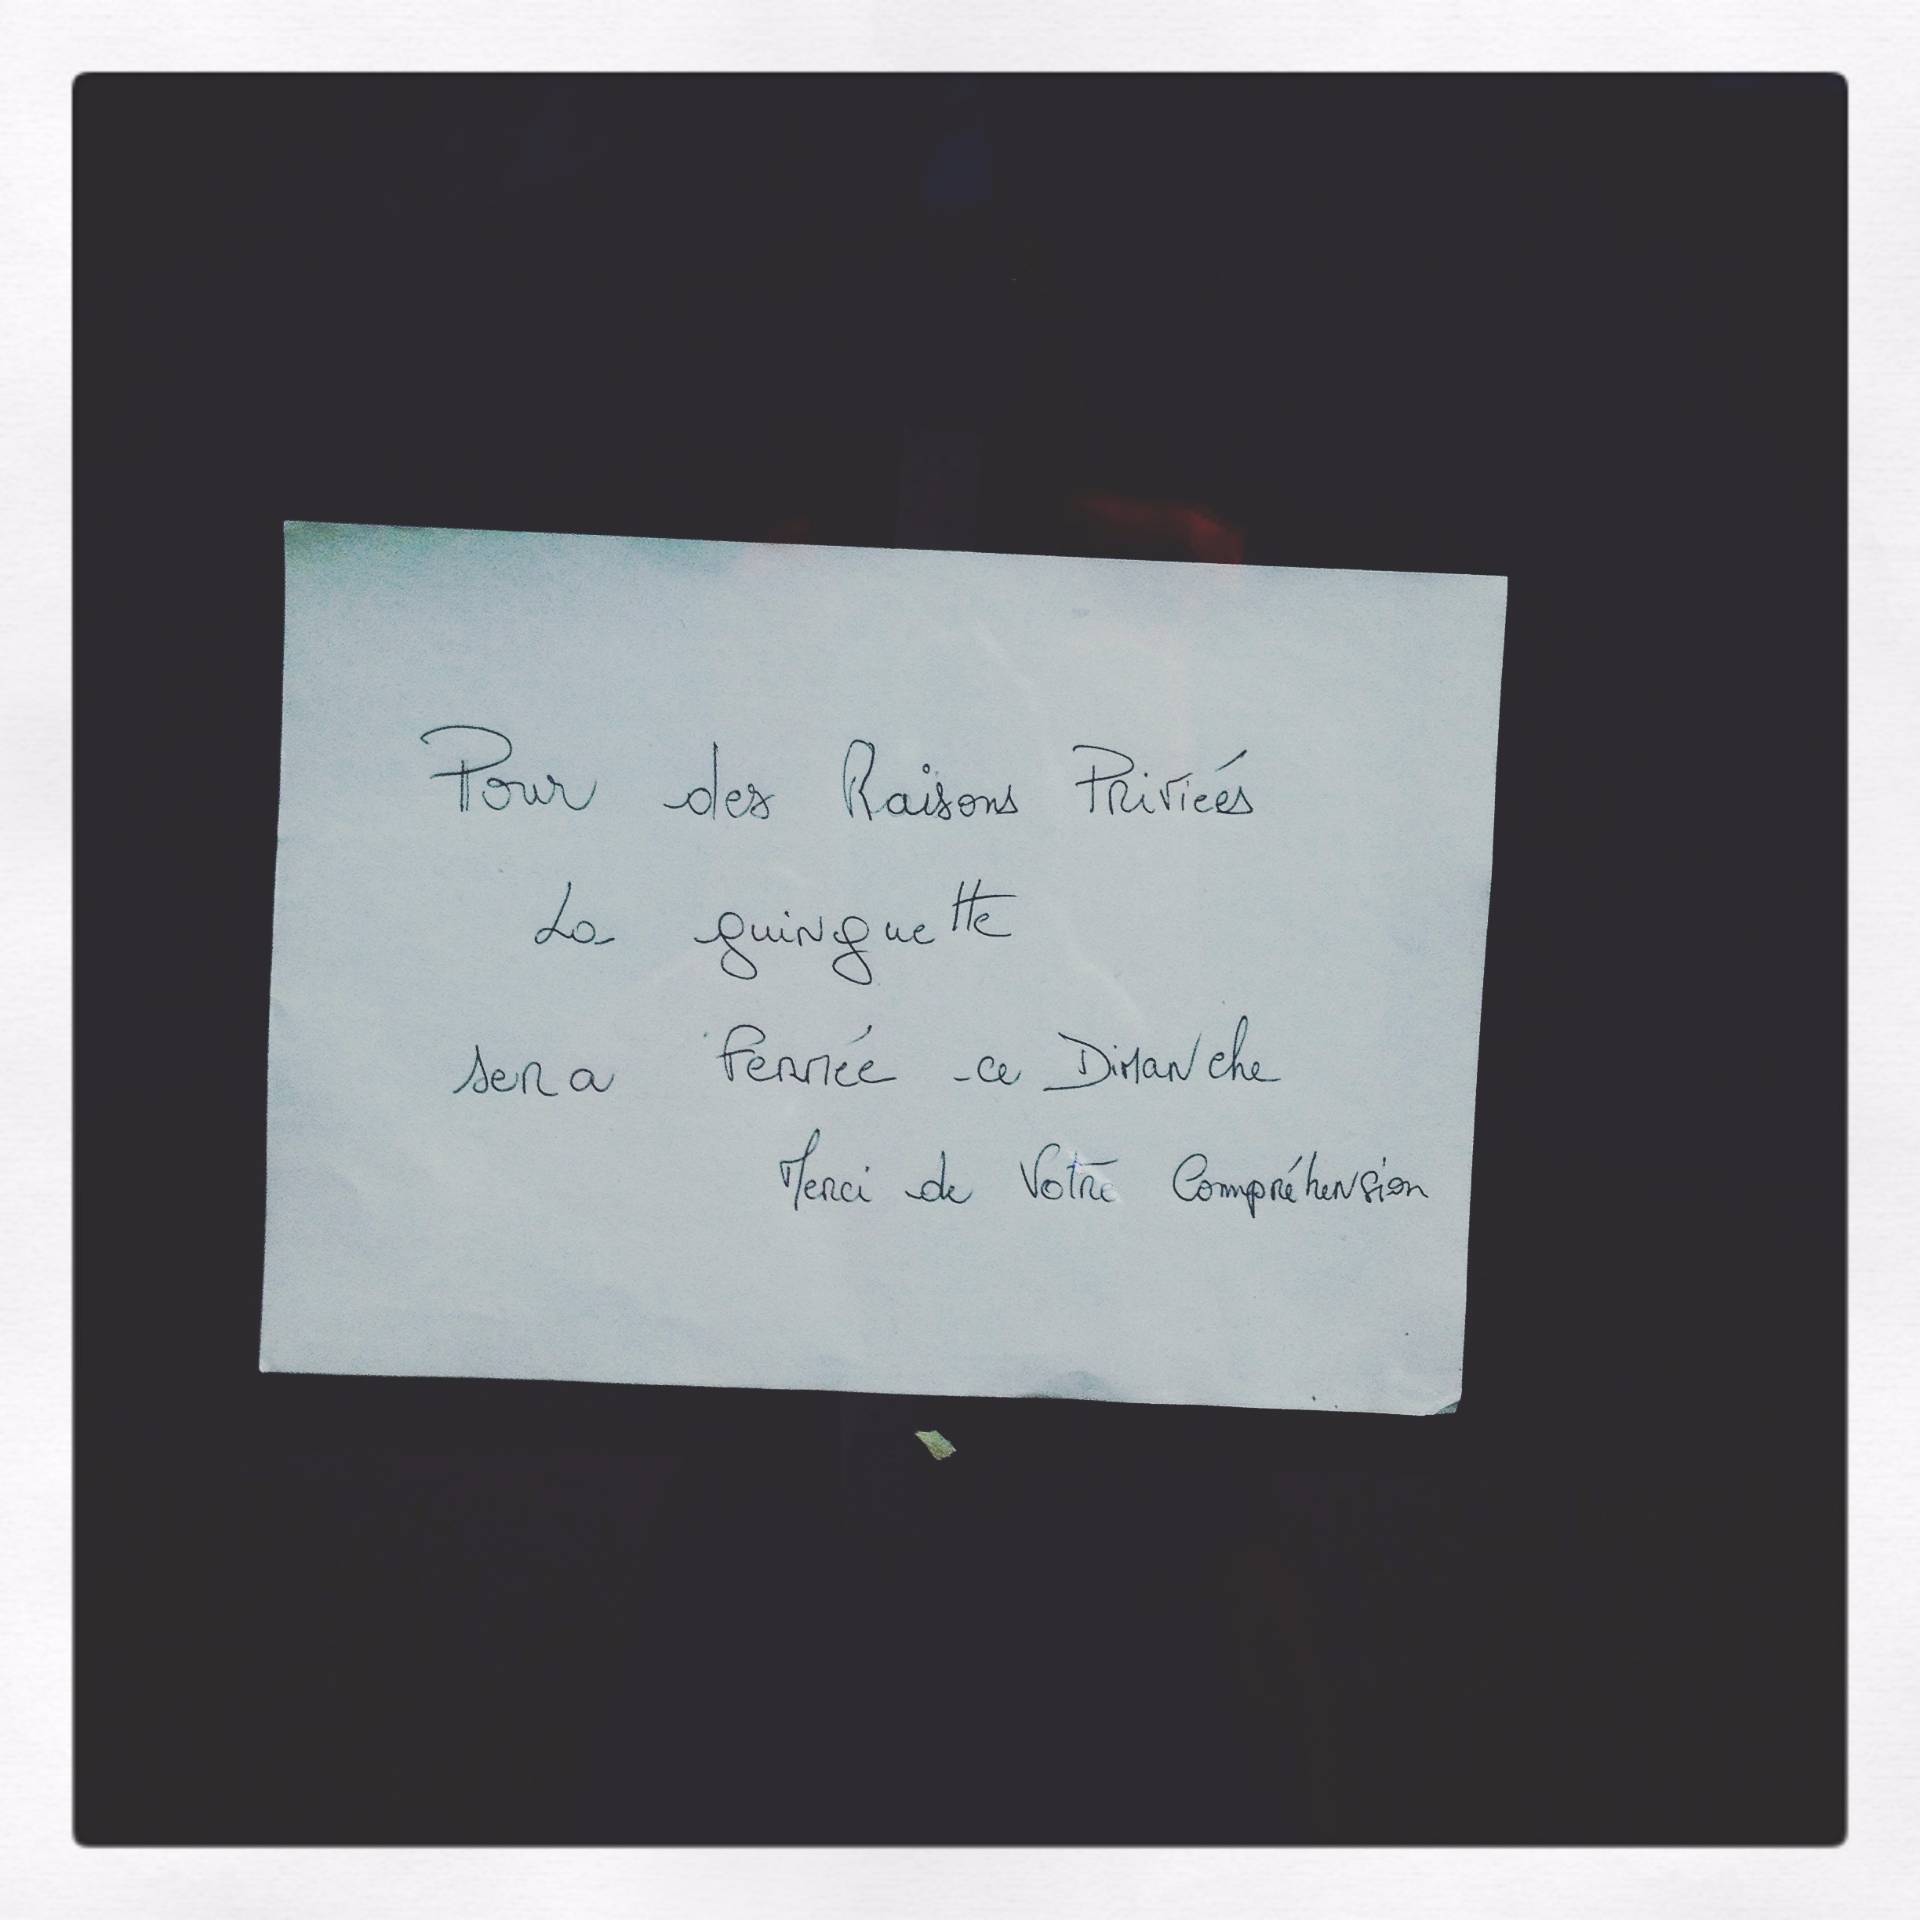 Pour des Raisons Priviées
La guinguette
sera Fermée ce Dimanche
Merci de Votre Compréhension